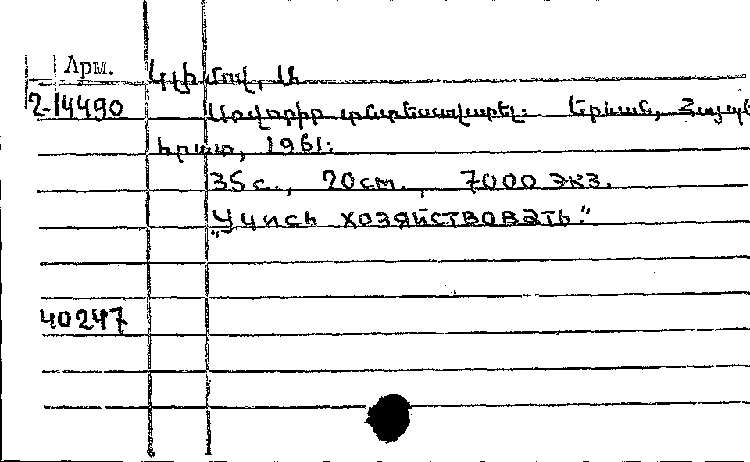 Арм.
2-14490
Սովորիր տնտեսավարել. Երևան, Հայպետ
հրատ, 1961:
35 с., 20 см., 7000 экз.
"Учись хозяйствовать."
40247